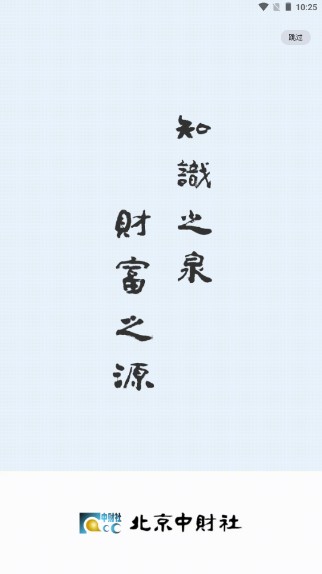 10:25
跳过
知識之泉
財富之源
中財社
CC
北京中財社